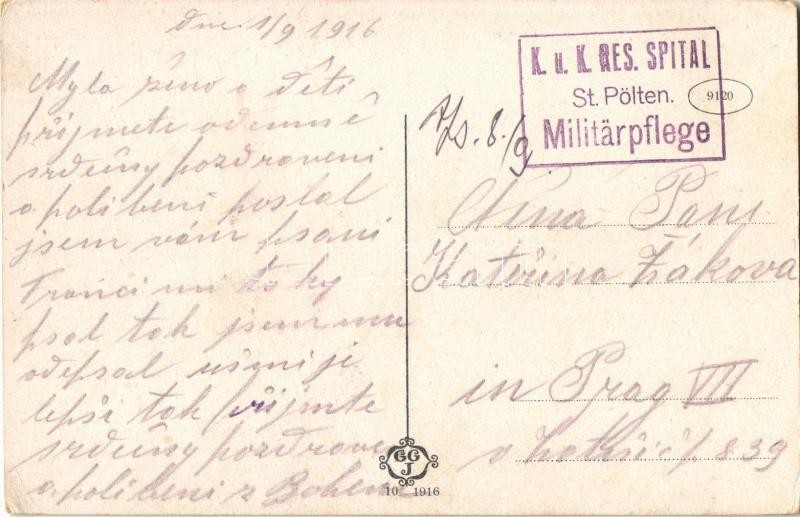 dne 1/9 1916
Myla ženo a děti
přijmete odemně
srdečny pozdraveni
a polibeni poslal
jsem vám psani
Franci mi taky
psal tak jsem mu
odepsal užmije
lepši tak přijmte
srdečny pozdrave
a polibeni z Bohem
K. u. K. RES. SPITAL
St. Pölten.
Militärpflege
9120
8./9.
Pani
Kateřina Žáková
in Prag VII
839
GGJ
10 1916